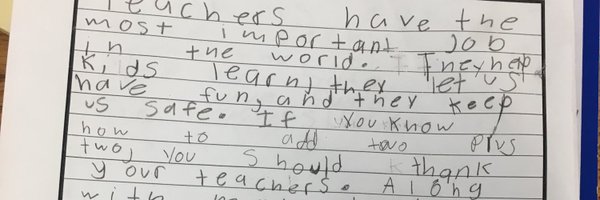 Teachers have the
most important Job
in the world. They help
kids learn, they let us
have fun, and they keep
us safe. If you know
how to add two plus
two, you should thank
your teachers. Along
with